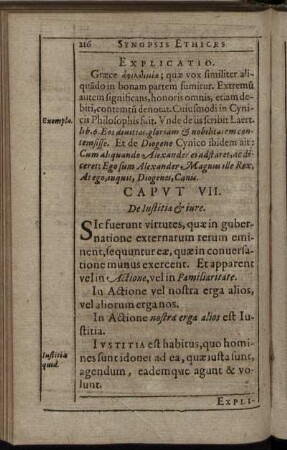 216 SYNOPSIS ETHICES
EXPLICATIO.
Græce ἀφιλοτιμία; quæ vox similiter ali-
quādo in bonam partem sumitur. Extremū
autem significans, honoris omnis, etiam de-
biti, contemtū denotat. Cuiusmodi in Cyni-
Exempla. cis Philosophis fuit. Vnde de iis scribit Laert.
lib. 6. Eos divitias, gloriam & nobilitatem con-
temsisse. Et de Diogene Cynico ibidem ait:
Cum aliquando Alexander ei adstaret, ac di-
ceret: Ego sum Alexander Magnus ille Rex.
At ego, inquit, Diogenes, Canis.
CAPVT VII.
De Iustitia & iure.
SIc fuerunt virtutes, quæ in guber-
natione externarum rerum emi-
nent, sequuntur eæ, quæ in conversa-
tione munus exercent. Et apparent
vel in Actione, vel in Familiaritate.
In Actione vel nostra erga alios,
vel aliorum erga nos.
In Actione nostra erga alios est Iu-
stitia.
Iustitia quid. IVSTITIA est habitus, quo homi-
nes sunt idonei ad ea, quæ iusta sunt,
agendum, eademque agunt & vo-
lunt.
EXPLI-